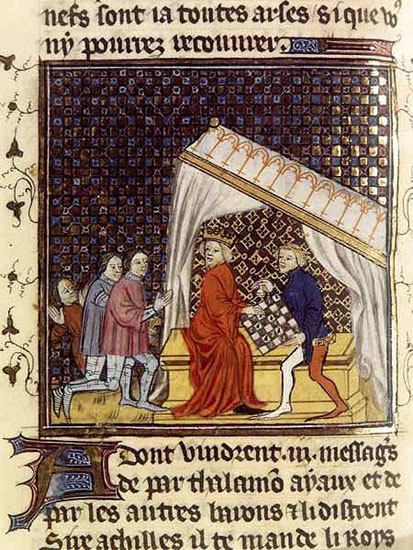 nefs sont ia toutes arses si que vo⁹
ny pourrez recouurer.
Adont vindrent .iii. messag̃s
de par thalamō ayaux et de
par les autres barons ⁊ li distrent
Sire achilles il te mande li Roys